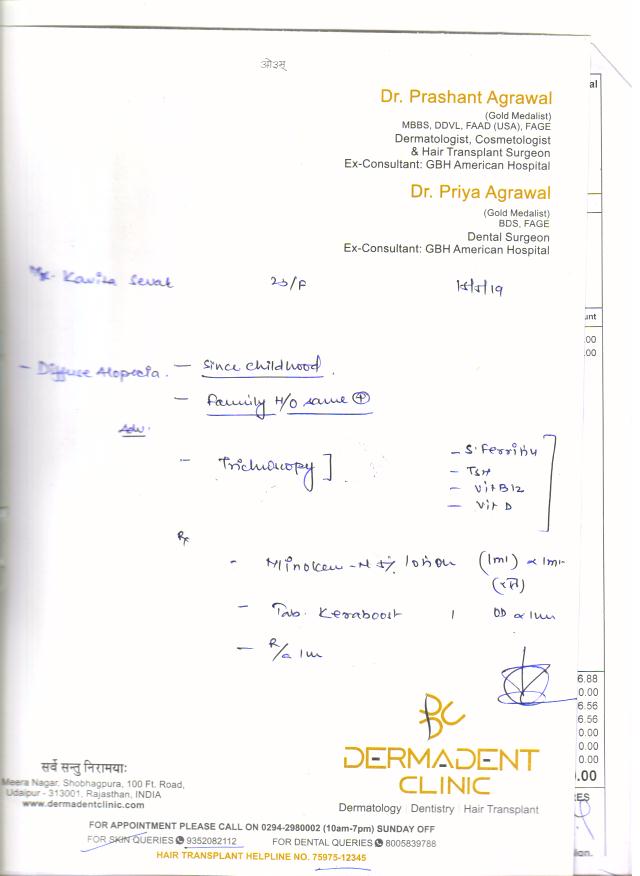 ओ३म्
Dr. Prashant Agrawal
(Gold Medalist)
MBBS, DDVL, FAAD (USA), FAGE
Dermatologist, Cosmetologist
& Hair Transplant Surgeon
Ex-Consultant: GBH American Hospital
Dr. Priya Agrawal
(Gold Medalist)
BDS, FAGE
Dental Surgeon
Ex-Consultant: GBH American Hospital
Kavita Sevak 23/F
- Diffuse Alopecia. - Since childhood.
- Family H/O same +
Adv.
- Trichoscopy ] - S. Ferritin
- TSH
- Vit B12
- Vit D
Rx
- Minoken-M 5% lotion (1ml)
- Tab. Keraboost 1 OD
- R/a 1m
DERMADENT
CLINIC
Dermatology | Dentistry | Hair Transplant
सर्वे सन्तु निरामयाः
Meera Nagar, Shobhagpura, 100 Ft. Road,
Udaipur - 313001, Rajasthan, INDIA
www.dermadentclinic.com
FOR APPOINTMENT PLEASE CALL ON 0294-2980002 (10am-7pm) SUNDAY OFF
FOR SKIN QUERIES 9352082112 FOR DENTAL QUERIES 8005839788
HAIR TRANSPLANT HELPLINE NO. 75975-12345
al
unt
.00
.00
6.88
0.00
6.56
6.56
0.00
0.00
0.00
.00